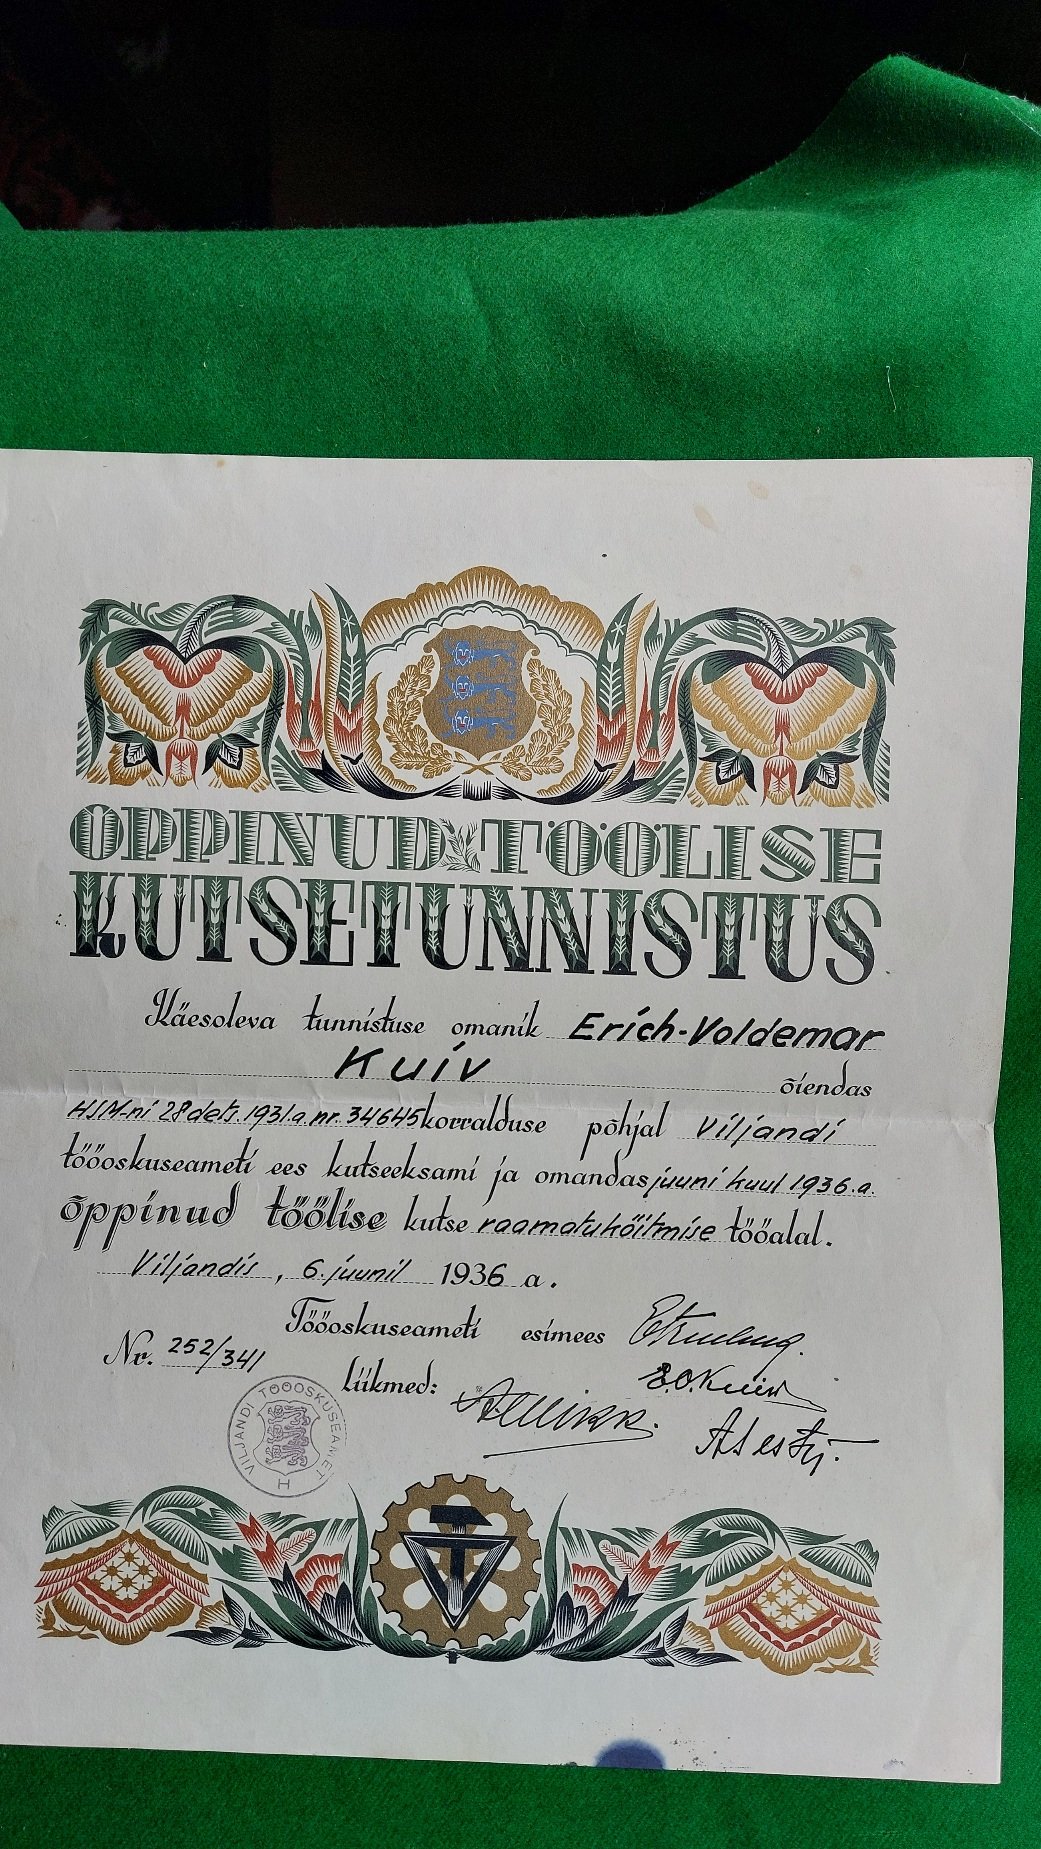 ÕPPINUD TÖÖLISE
KUTSETUNNISTUS
Käesoleva tunnistuse omanik Erich-Voldemar
Kuiv õiendas
HSM-ni 28 dets. 1931.a. nr. 34645 korralduse põhjal Viljandi
tööoskuseameti ees kutseeksami ja omandas juuni kuul 1936.a.
õppinud töölise kutse raamatuköitmise tööalal.
Viljandis, 6. juunil 1936 a.
Tööoskuseameti esimees
Nr. 252/341
Liikmed:
E.O.Kuiv
VILJANDI TÖÖOSKUSEAMET
H